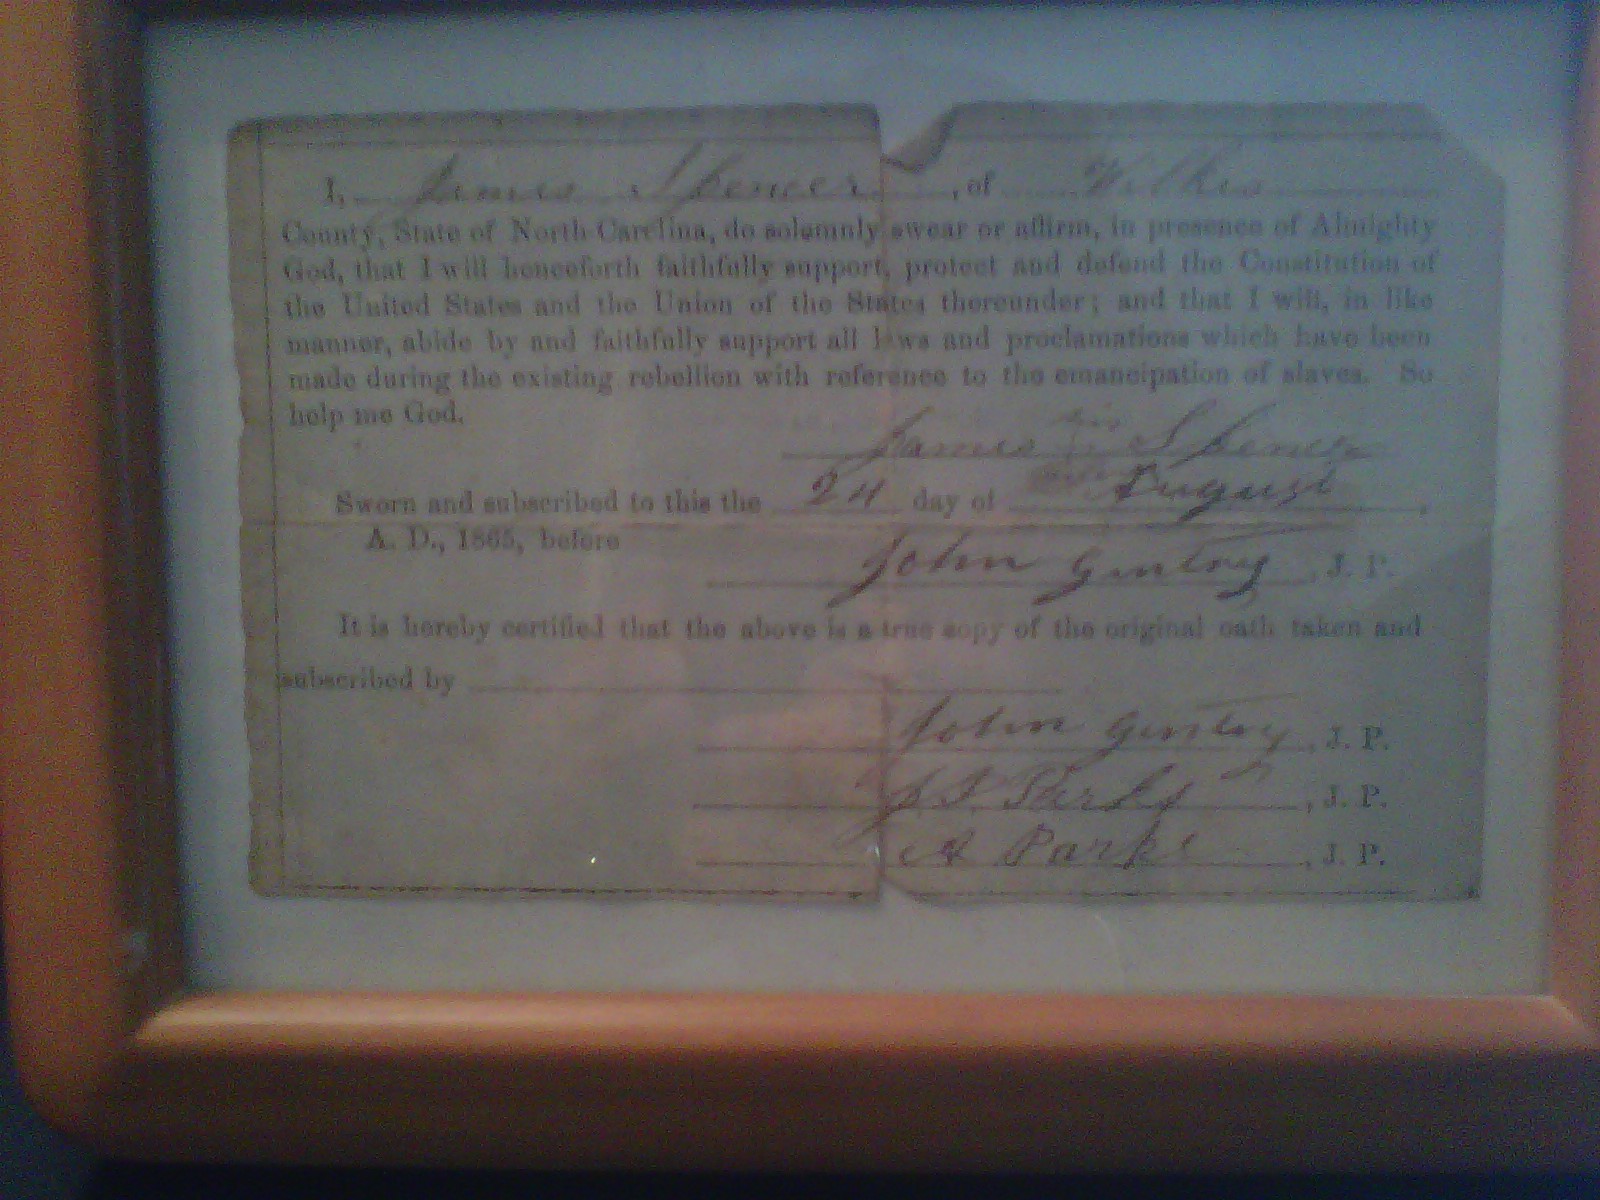 I, James Spencer, of Wilkes
County, State of North-Carolina, do solemnly swear or affirm, in presence of Almighty
God, that I will henceforth faithfully support, protect and defend the Constitution of
the United States and the Union of the States thereunder; and that I will, in like
manner, abide by and faithfully support all laws and proclamations which have been
made during the existing rebellion with reference to the emancipation of slaves. So
help me God.
his
James Spencer
Sworn and subscribed to this the 24 day of August,
A. D., 1865, before
John Gentry, J. P.
It is hereby certified that the above is a true copy of the original oath taken and
subscribed by
John Gentry, J. P.
Parks, J. P.
A Parks, J. P.